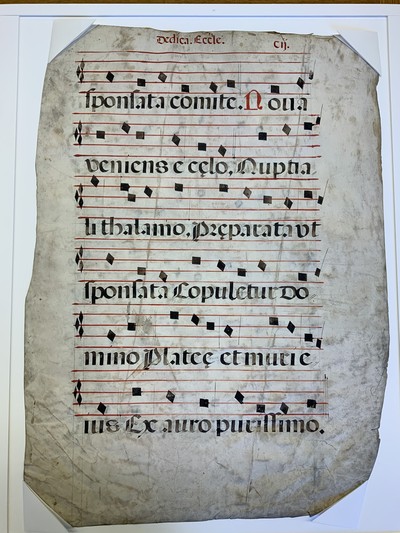 Dedica. Eccle. CIJ.
sponsata comite. Noua
veniens e cęlo, Nuptia
li thalamo. Pręparata vt
sponsata Copuletur Do
mino Plateę et muri e
ius Ex auro purissimo.